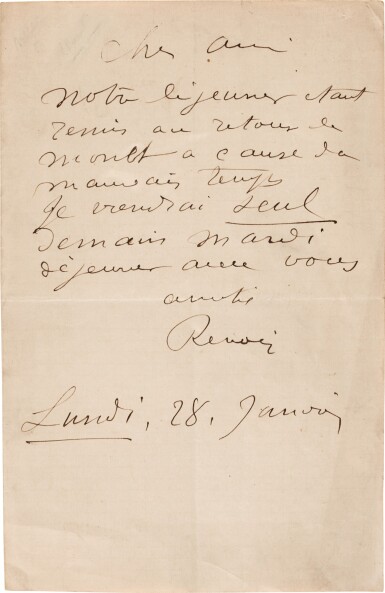 Cher ami
notre dejeuner etant
remis au retour de
monet a cause du
mauvais temps
Je viendrai seul
Demain mardi
déjeuner avec vous
amitié
Renoir
Lundi, 28, Janvier